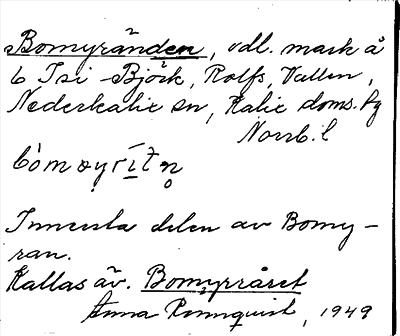 Bomyränden, odl. mark å
6 Isi Björk, Rolfs, Vallen,
Nederkalix sn, Kalix doms. fg
Norrb. l
Innersta delen av Bomy-
ran.
Kallas äv. Bomyrråret
Anna Rönnquist, 1949